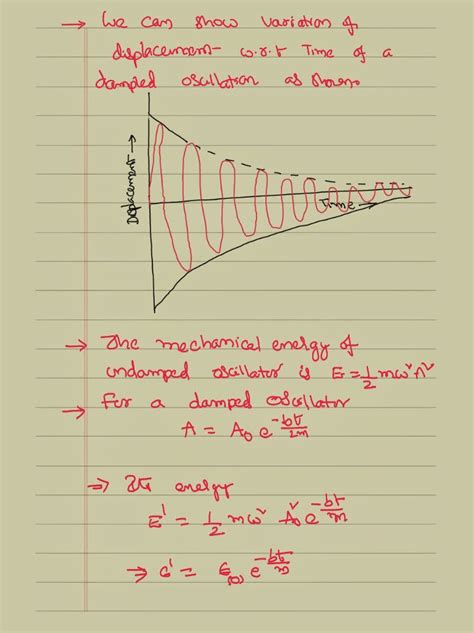 → We can show variation of
displacement w.r.t Time of a
damped oscillation as shown.
Displacement →
Time →
→ The mechanical energy of
undamped oscillator is E = 1/2 mω²A²
→ For a damped oscillator
A = A₀ e^(-bt/2m)
⇒ Its energy
E' = 1/2 mω² A₀² e^(-bt/m)
⇒ E' = E₍₀₎ e^(-bt/m)